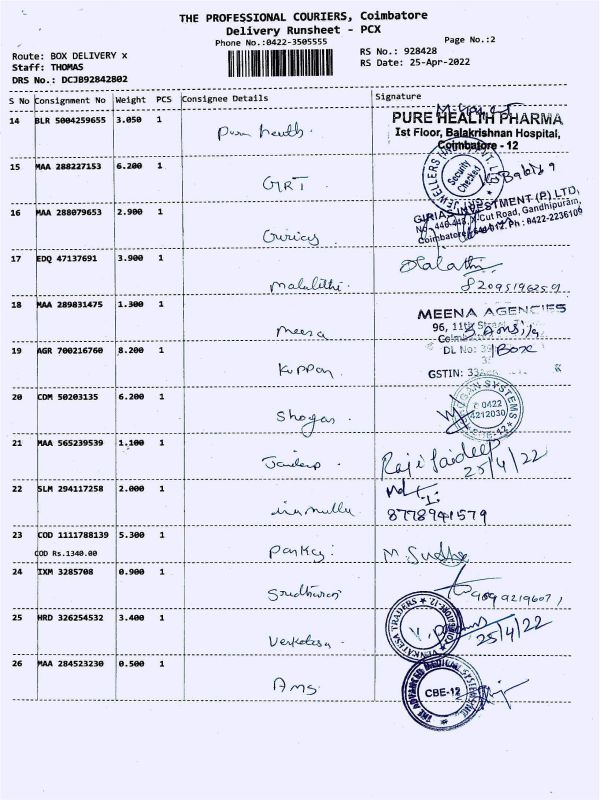 THE PROFESSIONAL COURIERS, Coimbatore
Delivery Runsheet - PCX
Phone No.:0422-3505555
Page No.:2
Route: BOX DELIVERY x
RS No.: 928428
Staff: THOMAS
RS Date: 25-Apr-2022
DRS No.: DCJB92842802
S No Consignment No Weight PCS Consignee Details Signature
14 BLR 5004259655 3.050 1 Pure health.
PURE HEALTH PHARMA
Ist Floor, Balakrishnan Hospital,
Coimbatore - 12
15 MAA 288227153 6.200 1 GRT
JEWELLERS
Security Checked
16 MAA 288079653 2.900 1
GIRIAS INVESTMENT (P) LTD,
No. X-Cut Road, Gandhipuram,
Coimbatore 641 012. Ph : 0422-2236109
17 EDQ 47137691 3.900 1
18 MAA 289831475 1.300 1 Meena
MEENA AGENCIES
96, 11th
DL No:
1 Box
GSTIN:
19 AGR 700216760 8.200 1 Kuppan
20 CDM 50203135 6.200 1
SYSTEMS
0422
4212030
21 MAA 565239539 1.100 1 Jaideep
Raji Jaideep
25/4/22
22 SLM 294117258 2.000 1
8778941579
23 COD 1111788139 5.300 1
COD Rs.1340.00
M. Sudha
24 IXM 3285708 0.900 1
25 HRD 326254532 3.400 1
VENKATESA TRADERS
25/4/22
26 MAA 284523230 0.500 1 Ams
THE ADVANCED MEDICAL SYSTEMS
CBE-12